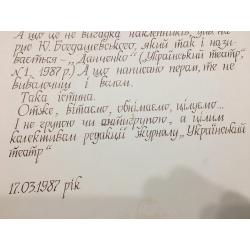 А що це не вигадка
рис Ю. Богдашевського, який так і нази-
вається – „Данченко“ („Український театр“,
№1, 1987 р.) А що написано пером, то не
виволочиш і волом.
Така істина.
Отже, вітаємо, обнімаємо, цілуємо...
І не групою чи антигрупою, а цілим
колективом редакції журналу „Український
театр“
17.03.1987 рік